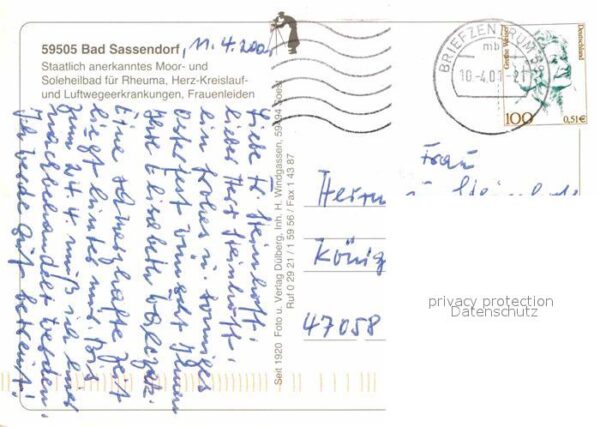 59505 Bad Sassendorf, 11.4.2001
Staatlich anerkanntes Moor- und
Soleheilbad für Rheuma, Herz-Kreislauf-
und Luftwegeerkrankungen, Frauenleiden
Liebe Fr. Steinhoff,
lieber Herr Steinhoff!
Ein frohes u. sonniges
Osterfest wünscht Ihnen
Ihre Elisabeth
Eine schmerzhafte Zeit
liegt hinter mir. Bis
zum 24.4. muß ich hier
nachbehandelt werden.
Ich werde gut betreut!
Seit 1920 Foto u. Verlag Dülberg, Inh. H. Windgassen, 59494 Soest
Ruf 0 29 21 / 1 59 56 / Fax 1 43 87
BRIEFZENTRUM
mb
10.-4.01-21
Deutschland
100
0,51€
Frau
Herrn
König
47058
privacy protection
Datenschutz